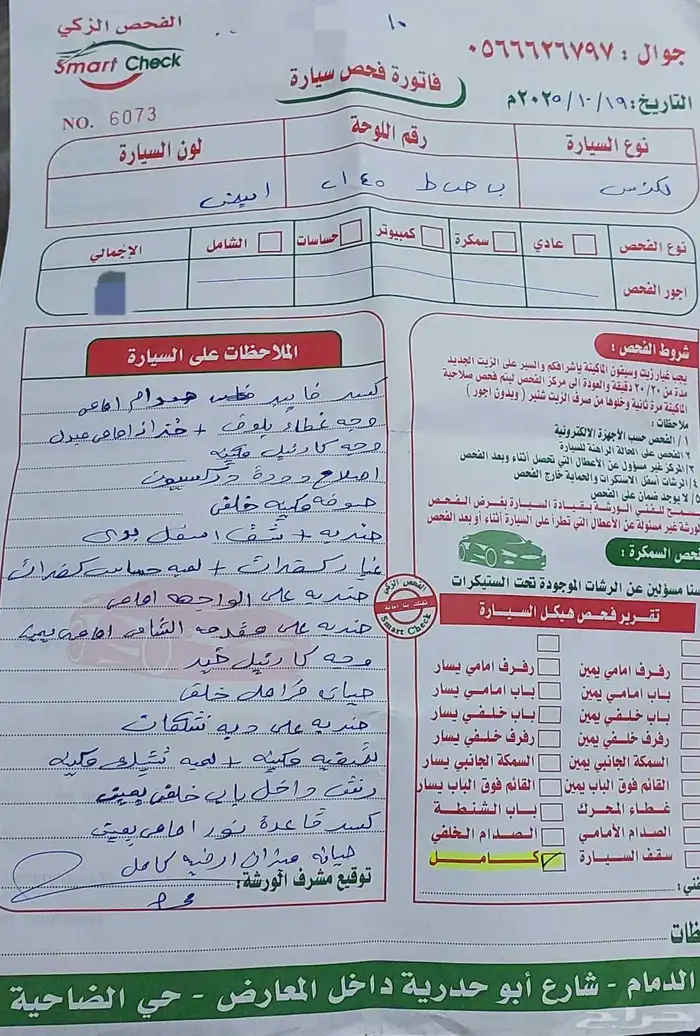 الفحص الزكي
Smart Check
١٠
جوال : ٠٥٦٦٦٢٦٧٩٧
فاتورة فحص سيارة
التاريخ: ٢٠٢٥/١٠/١٩م
NO. 6073
نوع السيارة
رقم اللوحة
لون السيارة
لكزس
ابيض
نوع الفحص
عادي
سمكرة
كمبيوتر
حساسات
الشامل
الإجمالي
اجور الفحص
الملاحظات على السيارة
صدام امامي
وجه غطاء بلوف +
وجه كارتيل مكينه
اصلاح دودة دركسيون
صوفه مكينه خلفي
ضربه + شق اسفل بودي
غيار دكفرات + لمبه حساس كفرات
ضربه على الواجهه امامي
ضربه على مقدمه الشاص امامي يمين
وجه كارتيل قير
خلفي
ضربه على
مكينه + لمبه تشيك مكينه
داخل باب خلفي يمين
كسر قاعدة نور امامي يمين
صيانه ميزان ارضيه كامل
توقيع مشرف الورشة:
شروط الفحص :
يجب غيار زيت وسيفون الماكينة بإشرافكم والسير على الزيت الجديد
مدة من ٢٠/٣٠ دقيقة والعودة الى مركز الفحص ليتم فحص صلاحية
الماكينة مرة ثانية وخلوها من صرف الزيت شنبر ( وبدون اجور )
ملاحظات :
١/ الفحص حسب الأجهزة الالكترونية
٢/ الفحص على الحالة الراهنة للسيارة
٣/ المركز غير مسؤول عن الأعطال التي تحصل أثناء وبعد الفحص
٤/ الرشات أسفل الاستكرات والحماية خارج الفحص
لا يوجد ضمان على الفحص
سمح للفني الورشة بقيادة السيارة بغرض الفحص
لورشة غير مسئولة عن الأعطال التي تطرأ على السيارة أثناء أو بعد الفحص
فحص السمكرة :
سنا مسؤلين عن الرشات الموجودة تحت الستيكرات
الفحص الزكي
Smart Check
تقرير فحص هيكل السيارة
رفرف امامي يمين
رفرف امامي يسار
باب امامي يمين
باب امامي يسار
باب خلفي يمين
باب خلفي يسار
رفرف خلفي يمين
رفرف خلفي يسار
السمكة الجانبي يمين
السمكة الجانبي يسار
القائم فوق الباب يمين
القائم فوق الباب يسار
غطاء المحرك
باب الشنطة
الصدام الأمامي
الصدام الخلفي
سقف السيارة
كامل
فني:
ظات
الدمام - شارع أبو حدرية داخل المعارض - حي الضاحية
حراج